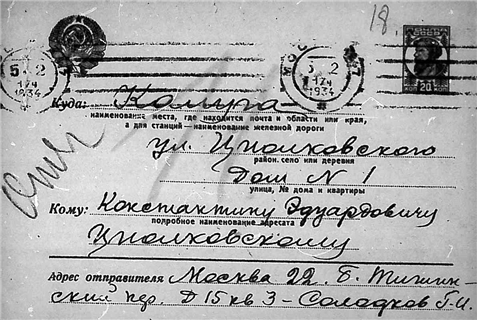 18.
МОСКВА
5. 2
17Ч
1934
МОСКВА
5. 2
17Ч
1934
СССР
20
Куда: Калуга
наименование места, где находится почта и области или края,
а для станций—наименование железной дороги
ул. Циолковского
район, село или деревня
Дом N 1
улица, № дома и квартиры
Кому: Константину Эдуардовичу
подробное наименование адресата
Циолковскому
Адрес отправителя Москва 22. Б. Тишин-
ский пер. Д 15 кв 3 - Солодков Г.И.